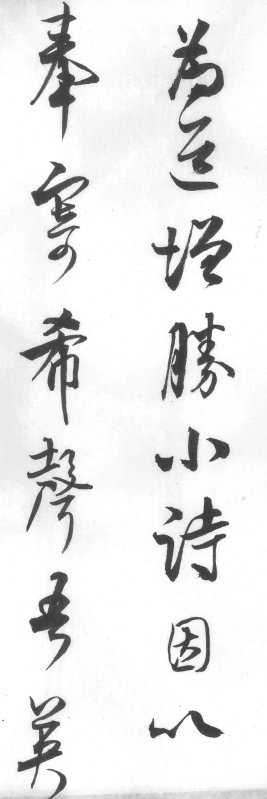 為道增勝小詩因以
奉寄希聲吾英